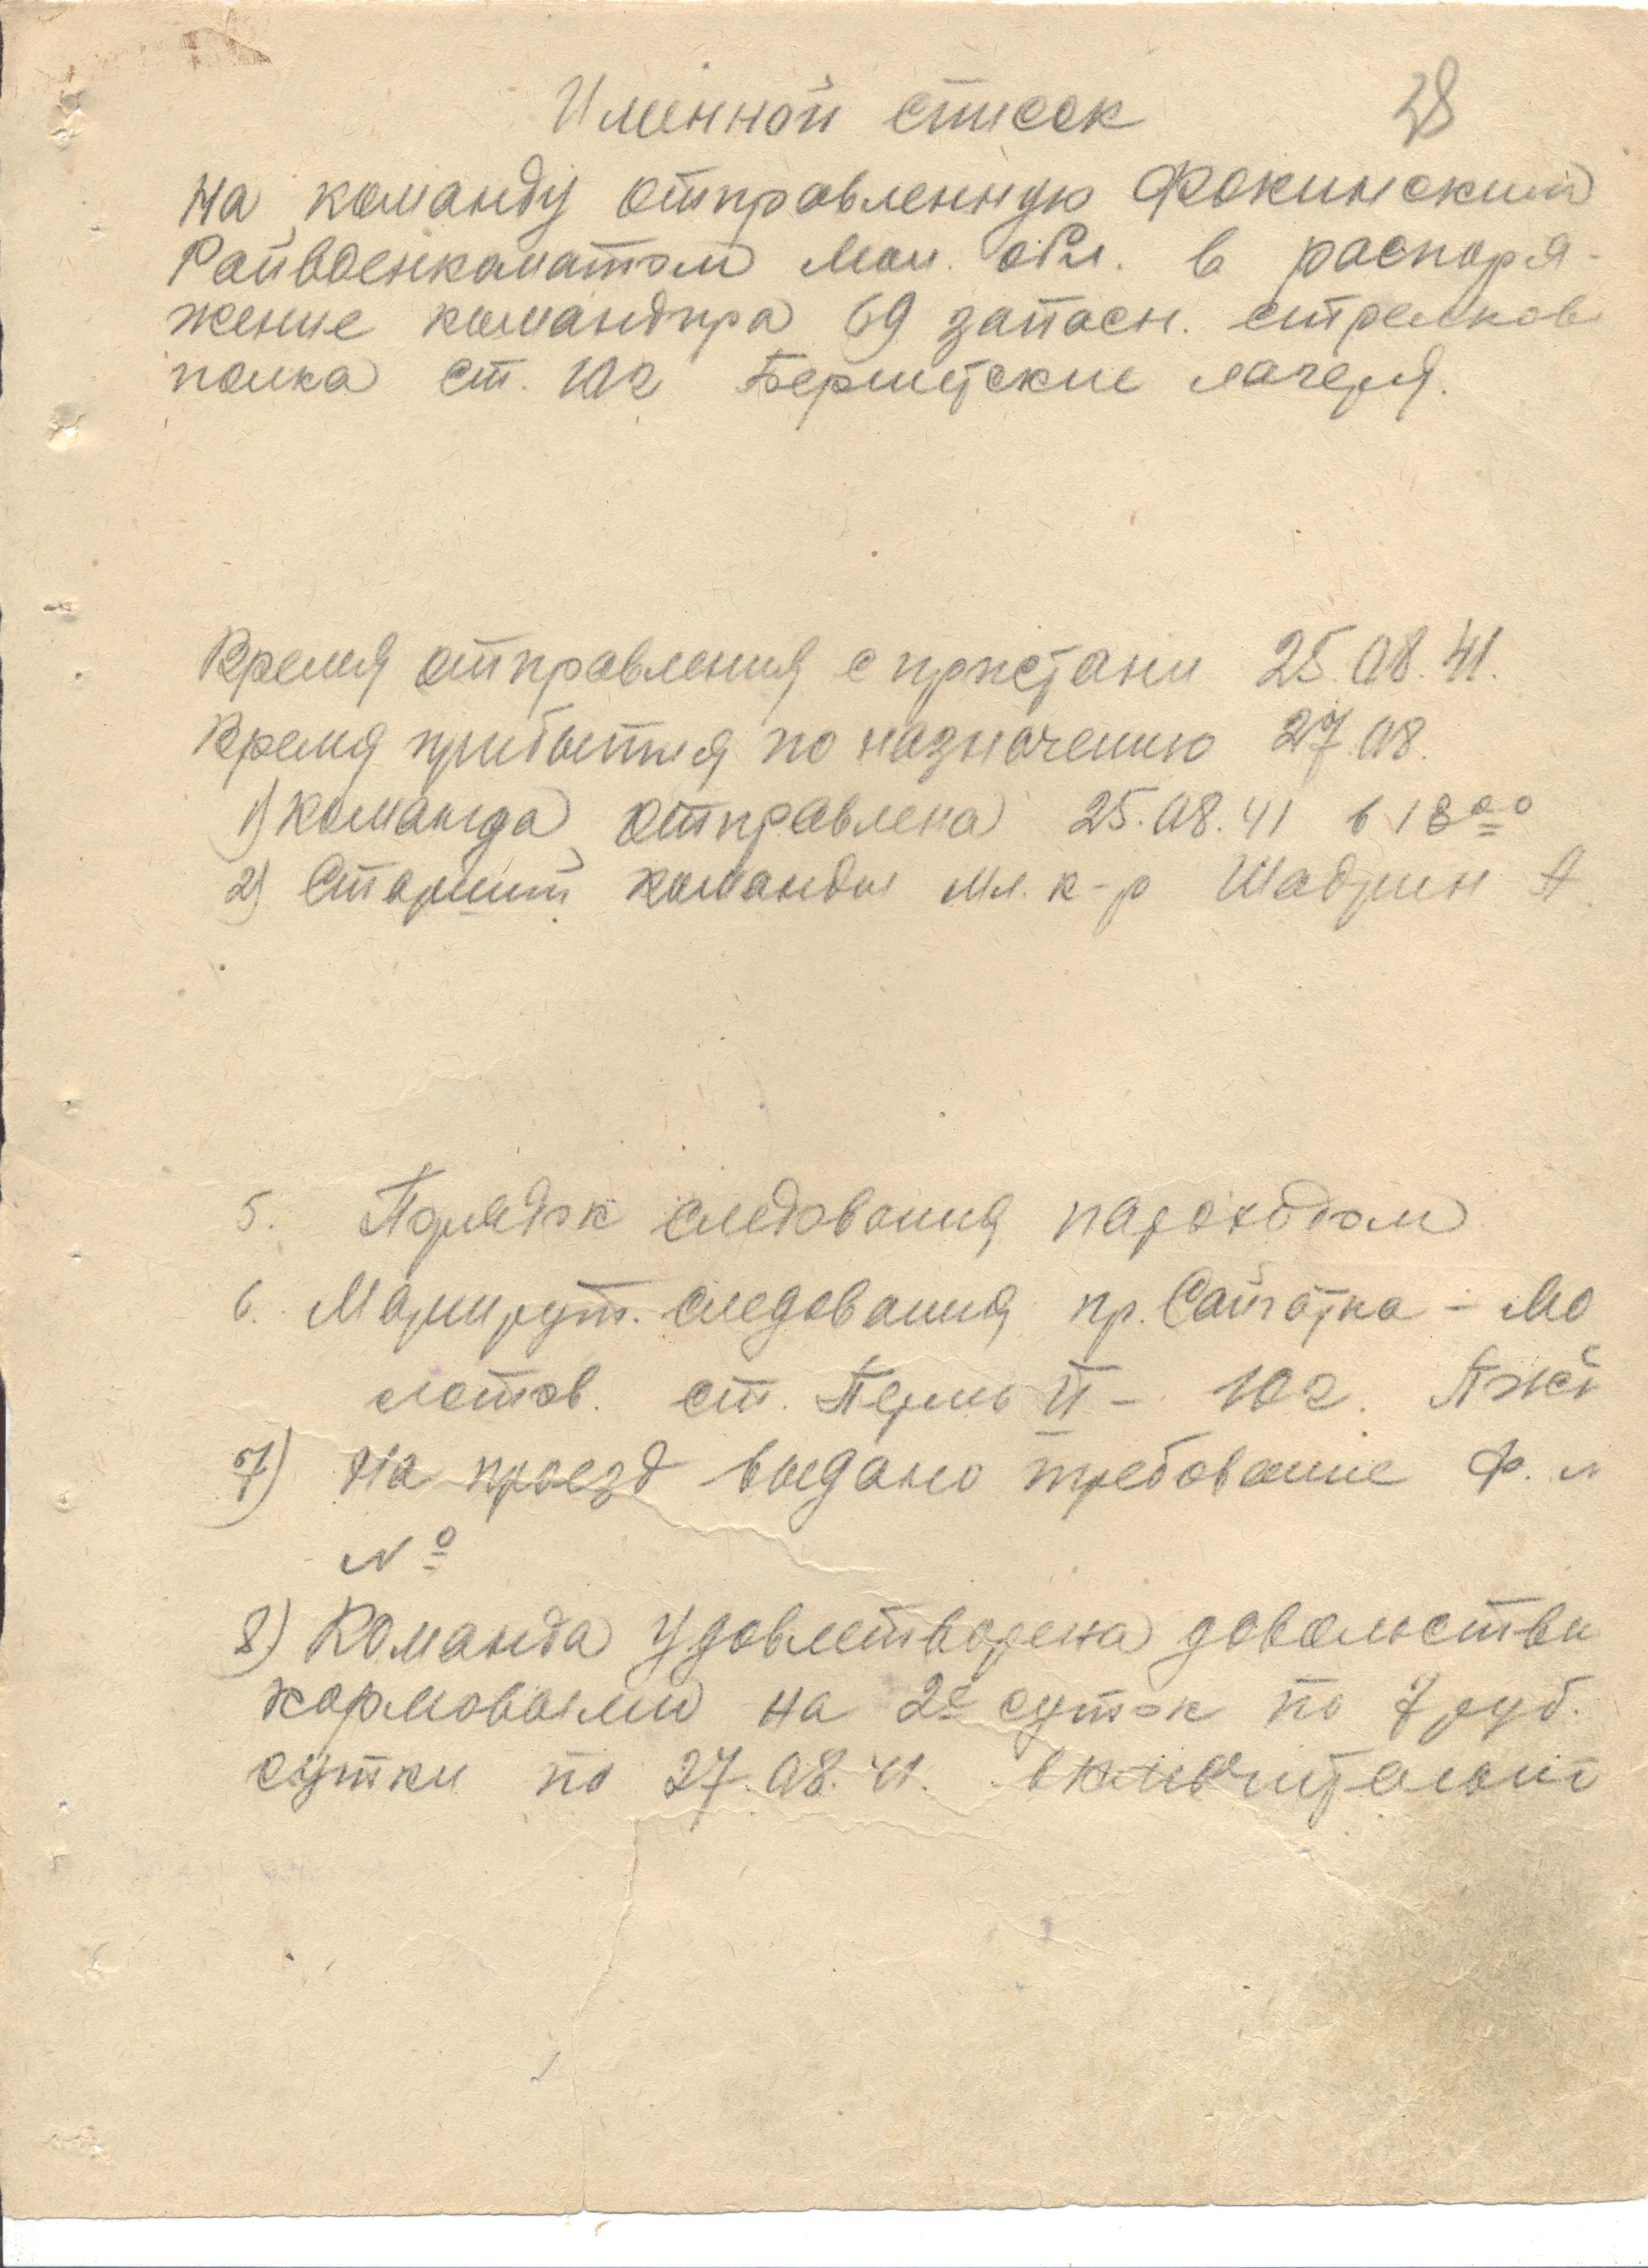 28
Именной список
на команду отправленную Фокинским
Райвоенкоматом Мол. обл. в распоря-
жение командира 69 запасн. стрелков
полка ст. Юг Бершетские лагеря.
Время отправления с пристани 25.08.41.
Время прибытия по назначению 27.08.
1) Команда отправлена 25.08.41 в 18°°
2) Старший команды мл. к-р Шадрин А.
5. Порядок следования пароходом
6. Маршрут. следования пр. Сайгатка – Мо
лотов. ст. Пермь II – Юг.
7) На проезд выдано требование ф.
№
8) Команда удовлетворена довольстви
кормовыми на 2е суток по 7 руб.
сутки по 27.08.41. включительно